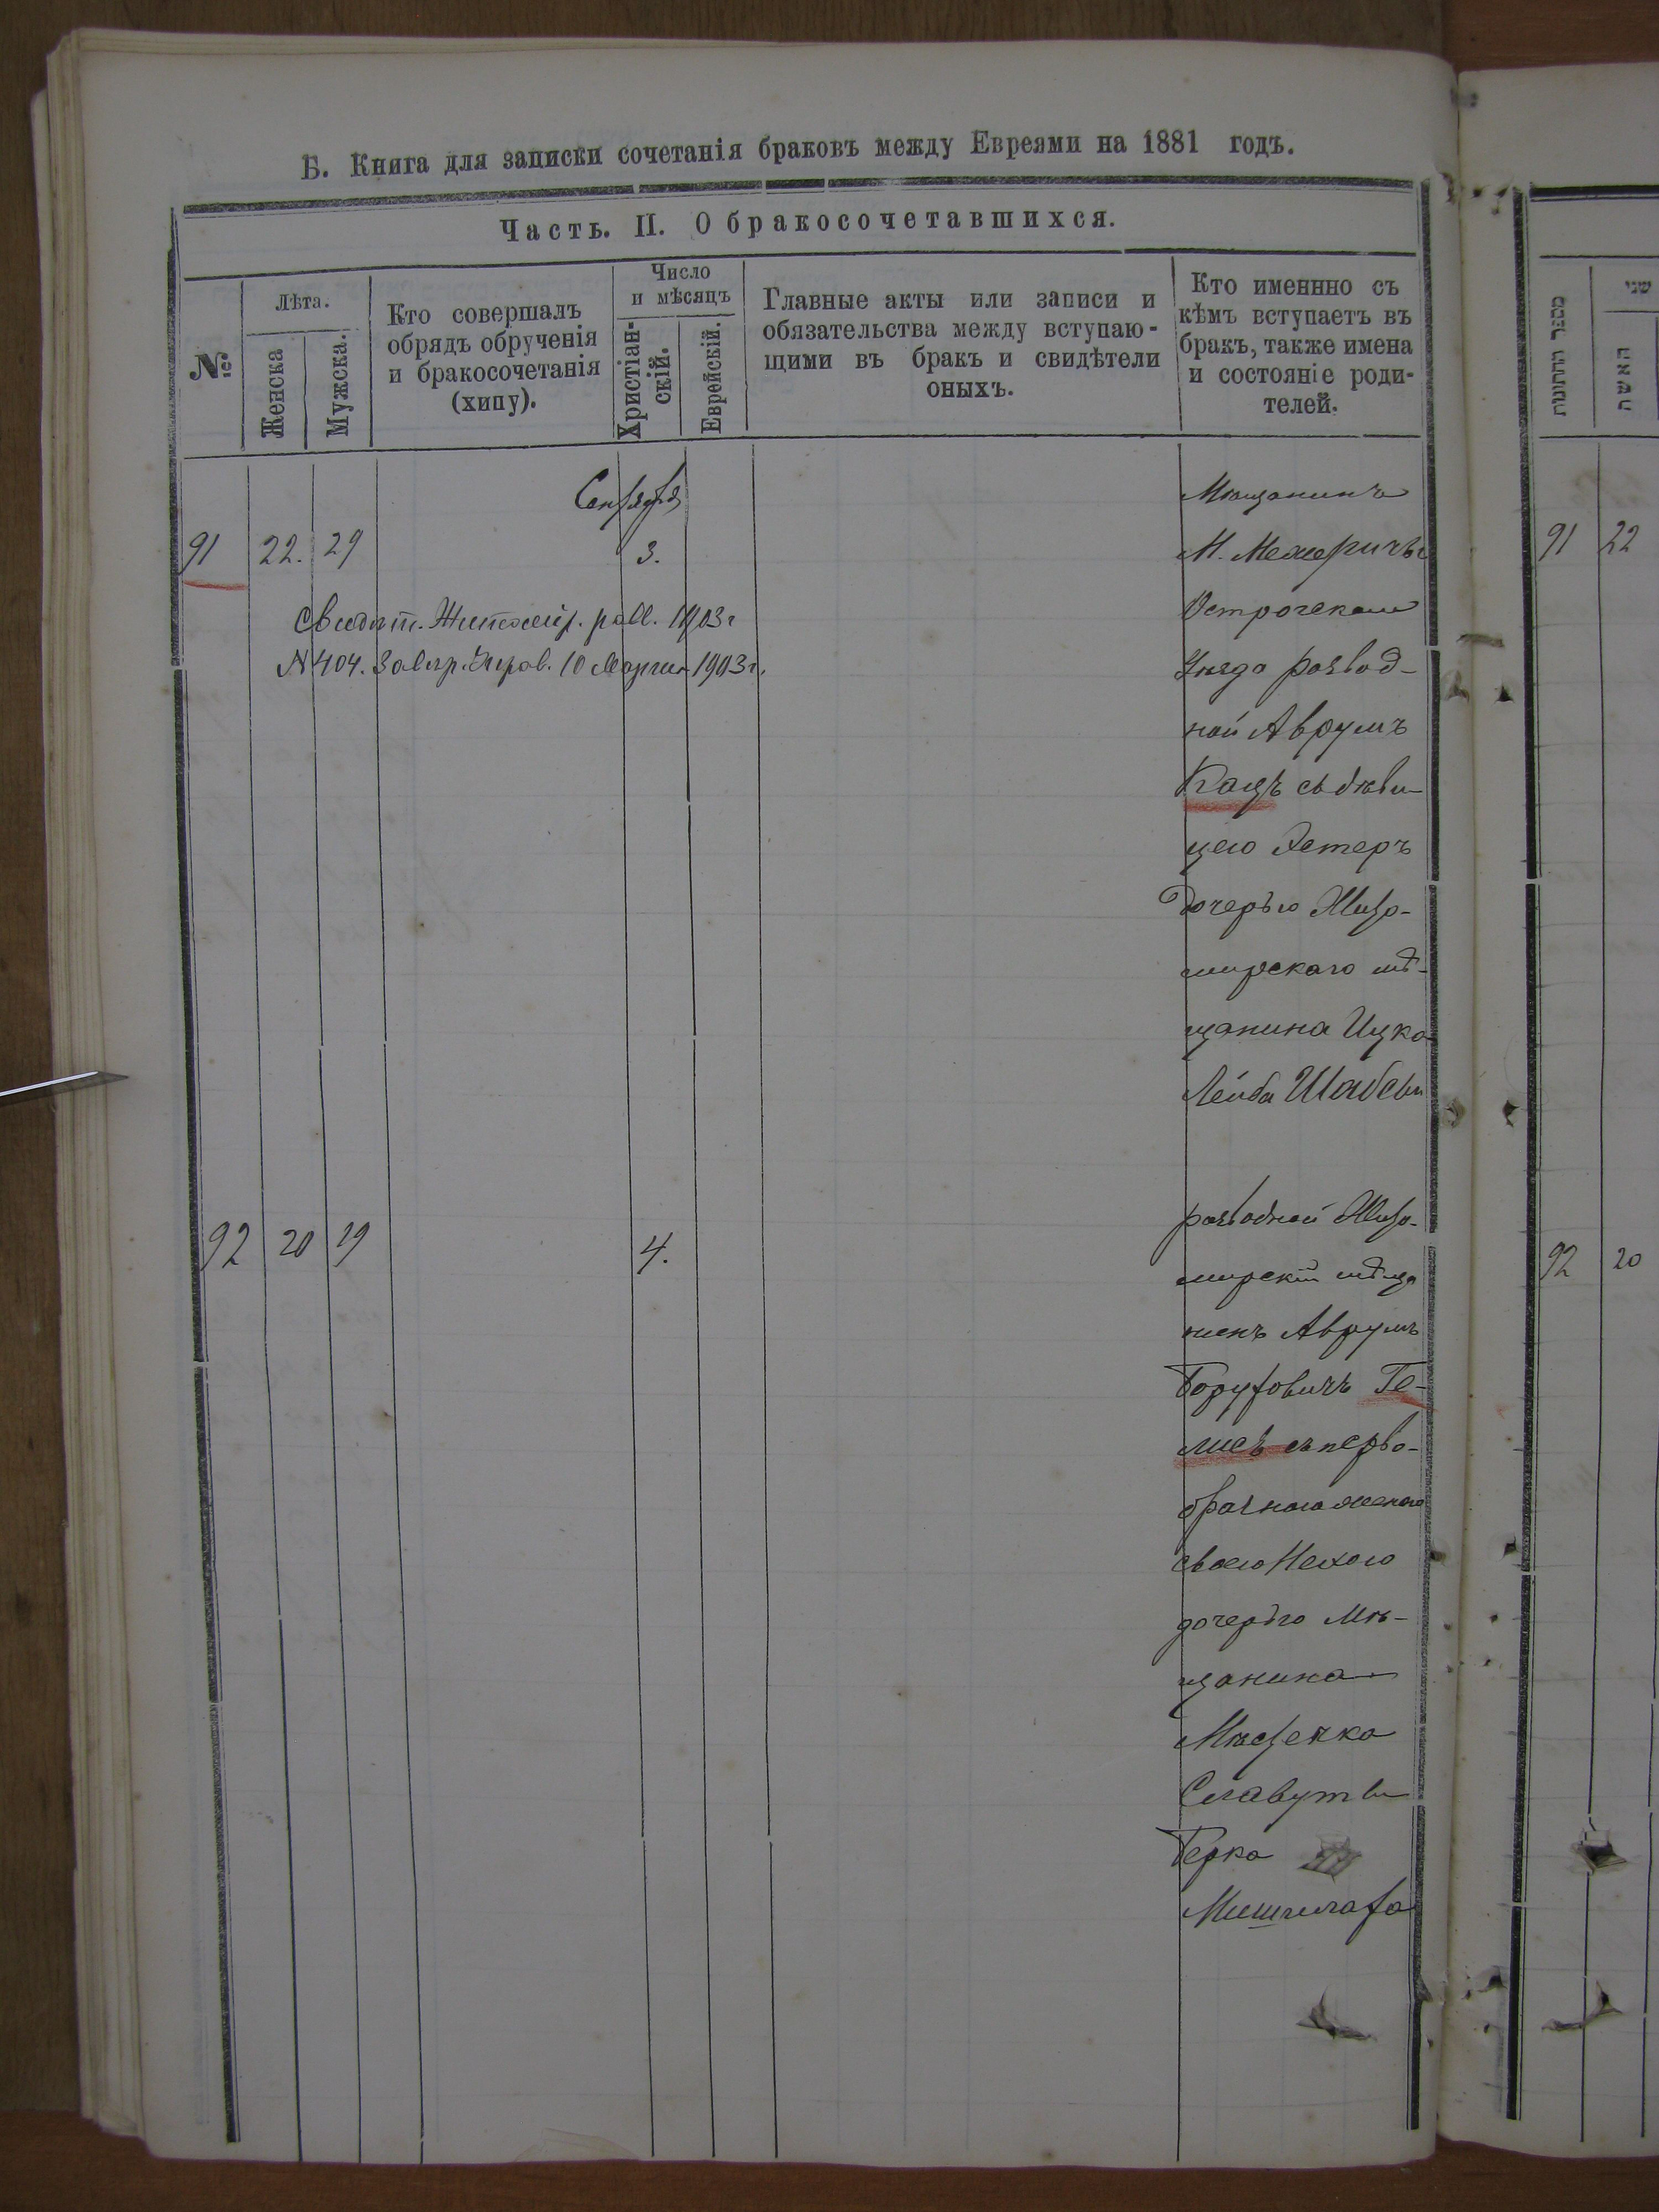 Б. Книга для записки сочетанія браковъ между Евреями на 1881 годъ.
Часть. II. О бракосочетавшихся.
№
Лѣта.
Женска
Мужска.
Кто совершалъ
обрядъ обрученія
и бракосочетанія
(хипу).
Число
и мѣсяцъ
Христіан-
скій.
Еврейскій.
Главные акты или записи и
обязательства между вступаю-
щими въ бракъ и свидѣтели
оныхъ.
Кто именнно съ
кѣмъ вступаетъ въ
бракъ, также имена
и состояніе роди-
телей.
Сентября
91 22. 29 3.
Свидѣт. Житомір. равв. 1903г
№404. Завѣр. Управ. 10 Марта 1903г.
Мѣщанинъ
М. Межеричъ
Острогскаго
Уѣзда развод-
ной Аврумъ
Кацъ съ дѣви-
цею Эстеръ
дочерью Жито-
мирскаго мѣ-
щанина Ицка
Лейба
92 20 19 4.
разводной Жито-
мирскій мѣща
нинъ Аврумъ
Боруховичъ Ге-
лисъ съ перво-
брачною женою
своею Нехою
дочерью Мѣ-
щанина
Мѣстечка
Славуты
Берка
שני
מספר החתונות
האשה
91 22
92 20